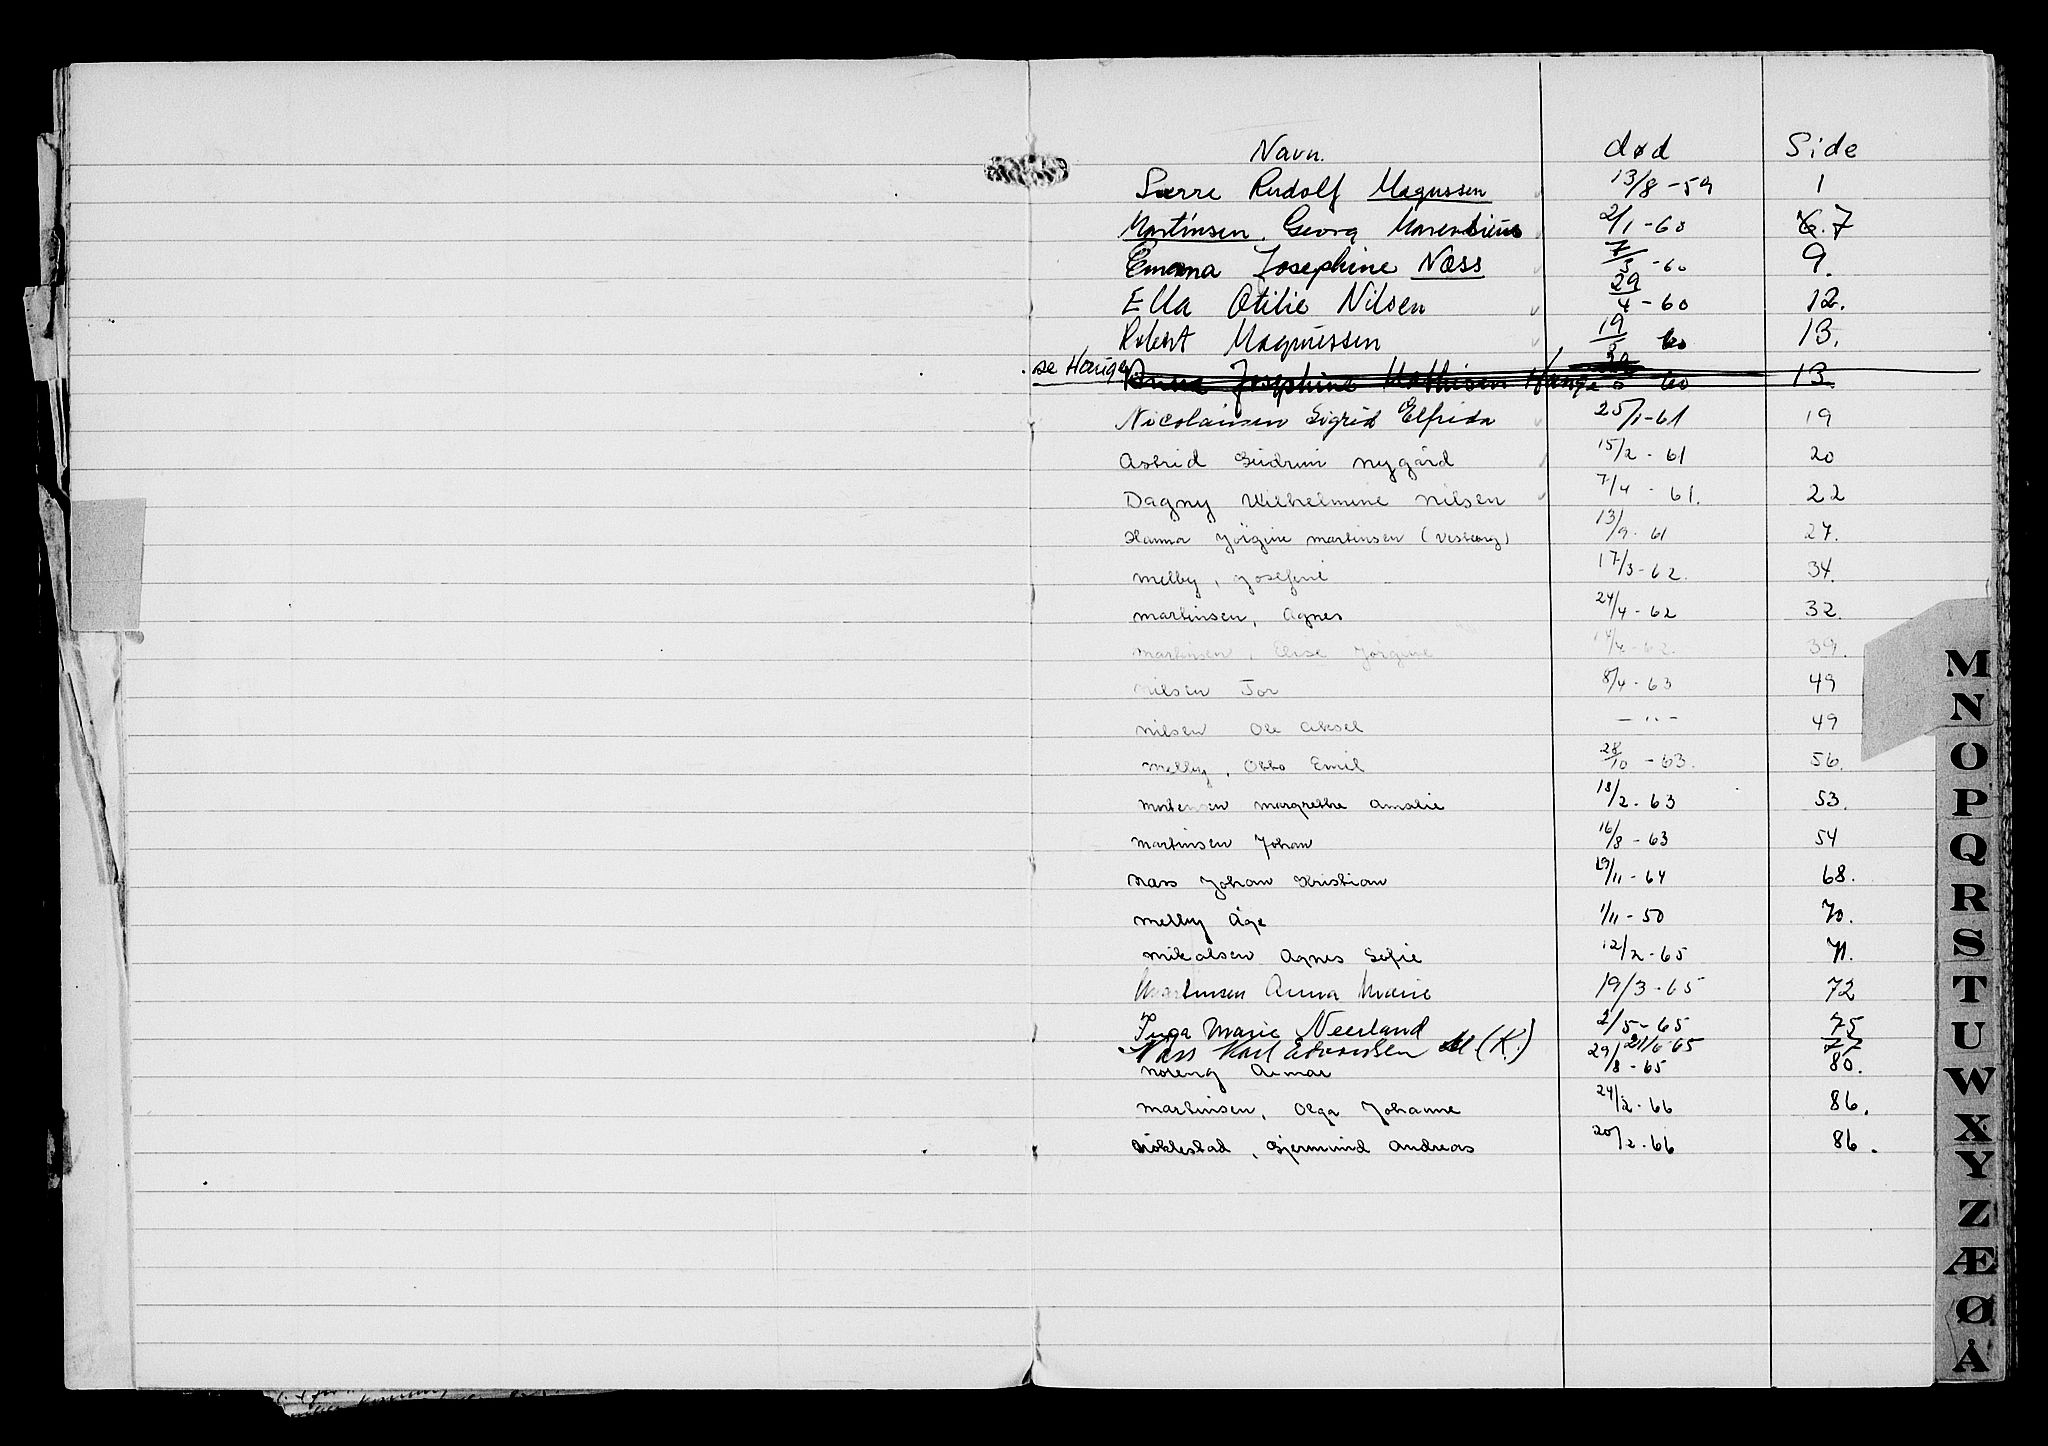 Navn. død Side
Sverre Rudolf Magnussen 13/8 - 59 1
Martinsen, Georg 2/1 - 60 6. 7
Emma Josephine Næss 7/3 - 60 9.
Ella Otilie Nilsen 29/4 - 60 12.
Robert Magnussen 19/5 60 13.
se Hauge Anna Josephine Mathisen Hauge 60 13.
Nicolaisen Sigrid Elfrida 25/1-61 19
Astrid Gudrun Nygård 15/2 - 61 20
Dagny Wilhelmine Nilsen 7/4 - 61. 22
Hanna Jørgine Martinsen 13/9 - 61 27.
Melby, Josefine 17/3-62. 34.
Martinsen, Agnes 24/4 - 62 32.
Martinsen, Elise Jørgine 62. 39.
Nilsen Tor 8/4 - 63 49
Nilsen Ole Aksel — " — 49
Melby, Otto Emil 28/10 - 63. 56.
Mortensen Margrethe Amalie 18/2 - 63 53.
Martinsen Johan 16/8 - 63 54
Næss Johan Kristian 29/11 - 64 68.
Melby Åge 1/11 - 50 70.
Mikalsen Agnes Sofie 12/2 - 65 71.
Martinsen Anna Marie 19/3 - 65 72
Inga Marie Neerland 2/5 - 65 75
Næss Karl Edvardsen (K.) 21/6 65 77
Noreng Armar 29/8 - 65 80.
Martinsen, Olga Johanne 24/2 - 66 86.
Gjermund Andreas 20/2 - 66 86.
M
N
O
P
Q
R
S
T
U
W
X
Y
Z
Æ
Ø
Å